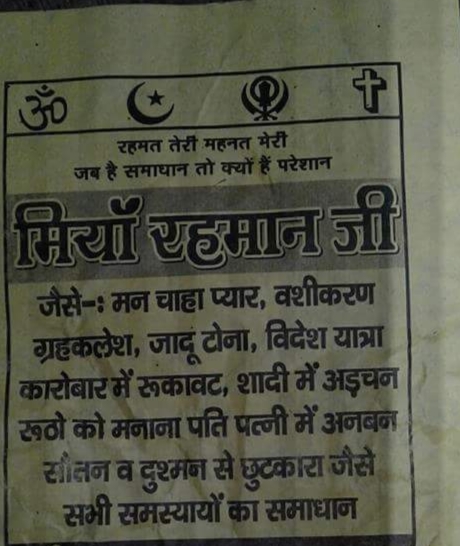 ॐ
रहमत तेरी महनत मेरी
जब है समाधान तो क्यों हैं परेशान
मियाँ रहमान जी
जैसे-: मन चाहा प्यार, वशीकरण
ग्रहकलेश, जादू टोना, विदेश यात्रा
कारोबार में रूकावट, शादी में अड़चन
रूठो को मनाना पति पत्नी में अनबन
सौतन व दुश्मन से छुटकारा जैसे
सभी समस्यायों का समाधान